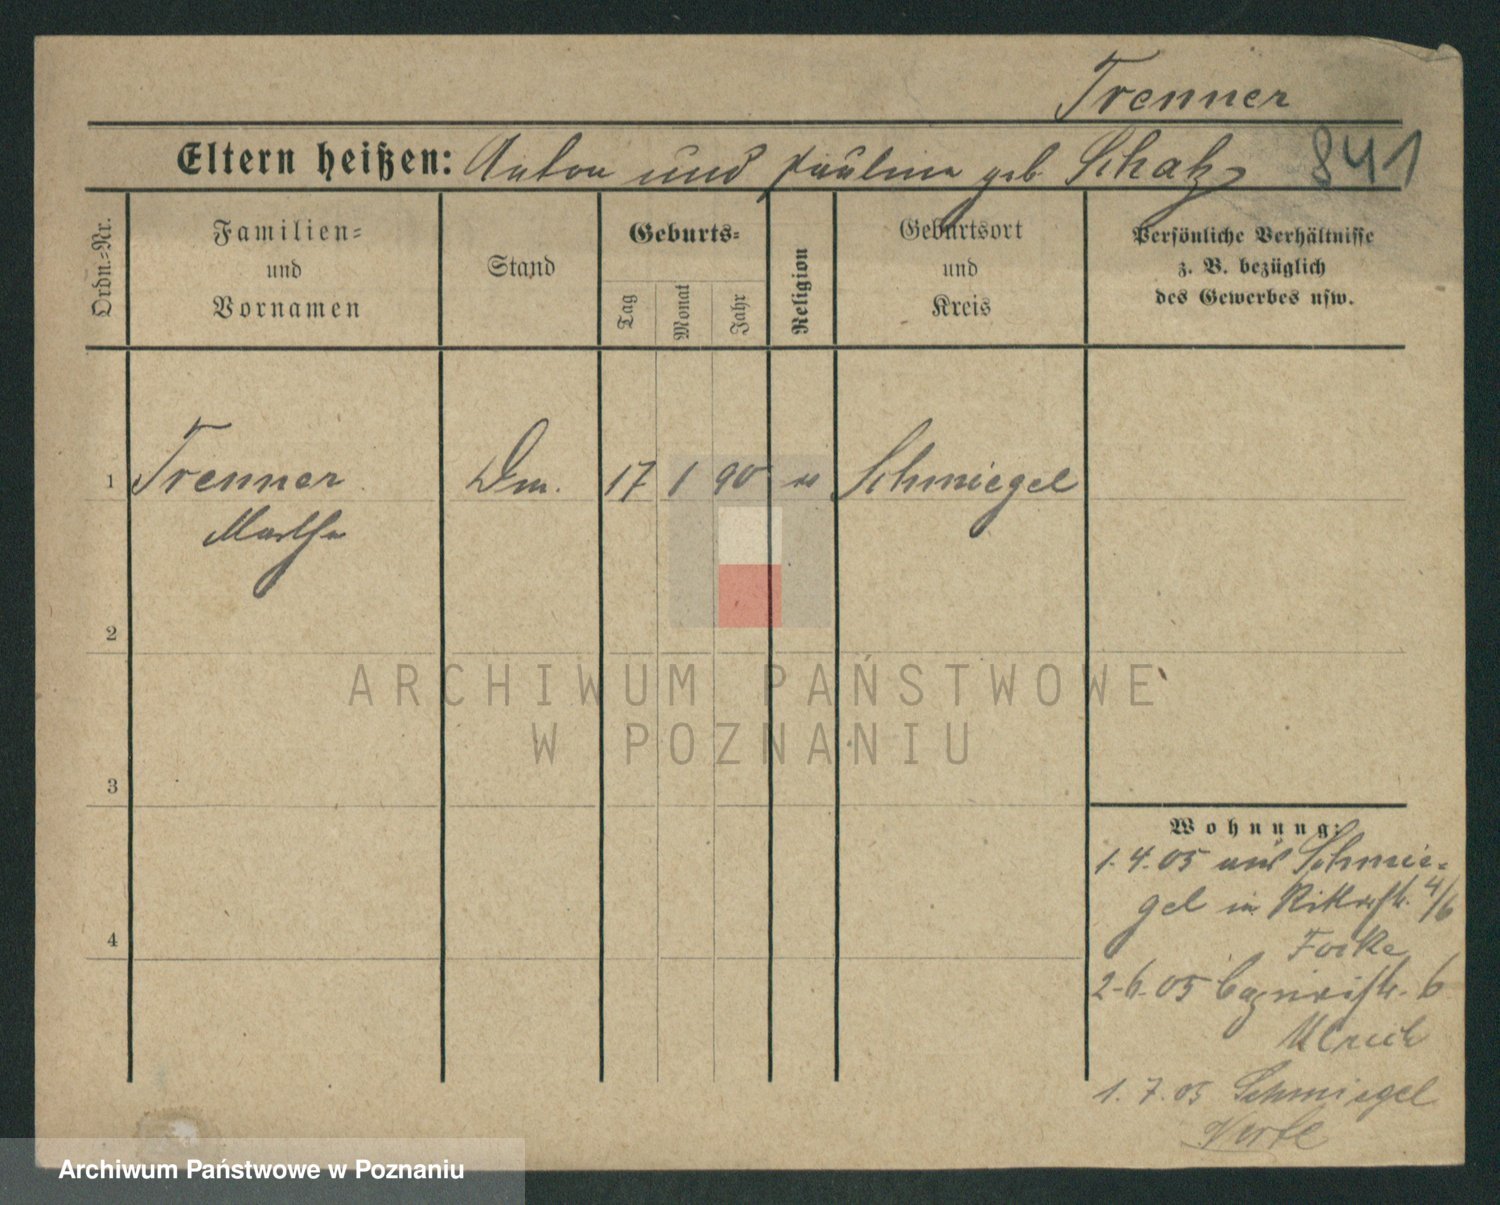 Trenner
Eltern heißen: Anton und Paulina geb Schatz 841
Ordn.-Nr.
Familien-
und
Vornamen
Stand
Geburts-
Tag
Monat
Jahr
Religion
Geburtsort
und
Kreis
Persönliche Verhältnisse
z. B. bezüglich
des Gewerbes usw.
1 Trenner Dm. 17 1 90 Schmiegel
Martha
2
3
4
Wohnung:
1.4.05 aus Schmie-
gel in 4/6
2-6.05 6
Ulrich
1.7.05 Schmiegel
ARCHIWUM PAŃSTWOWE
W POZNANIU
Archiwum Państwowe w Poznaniu